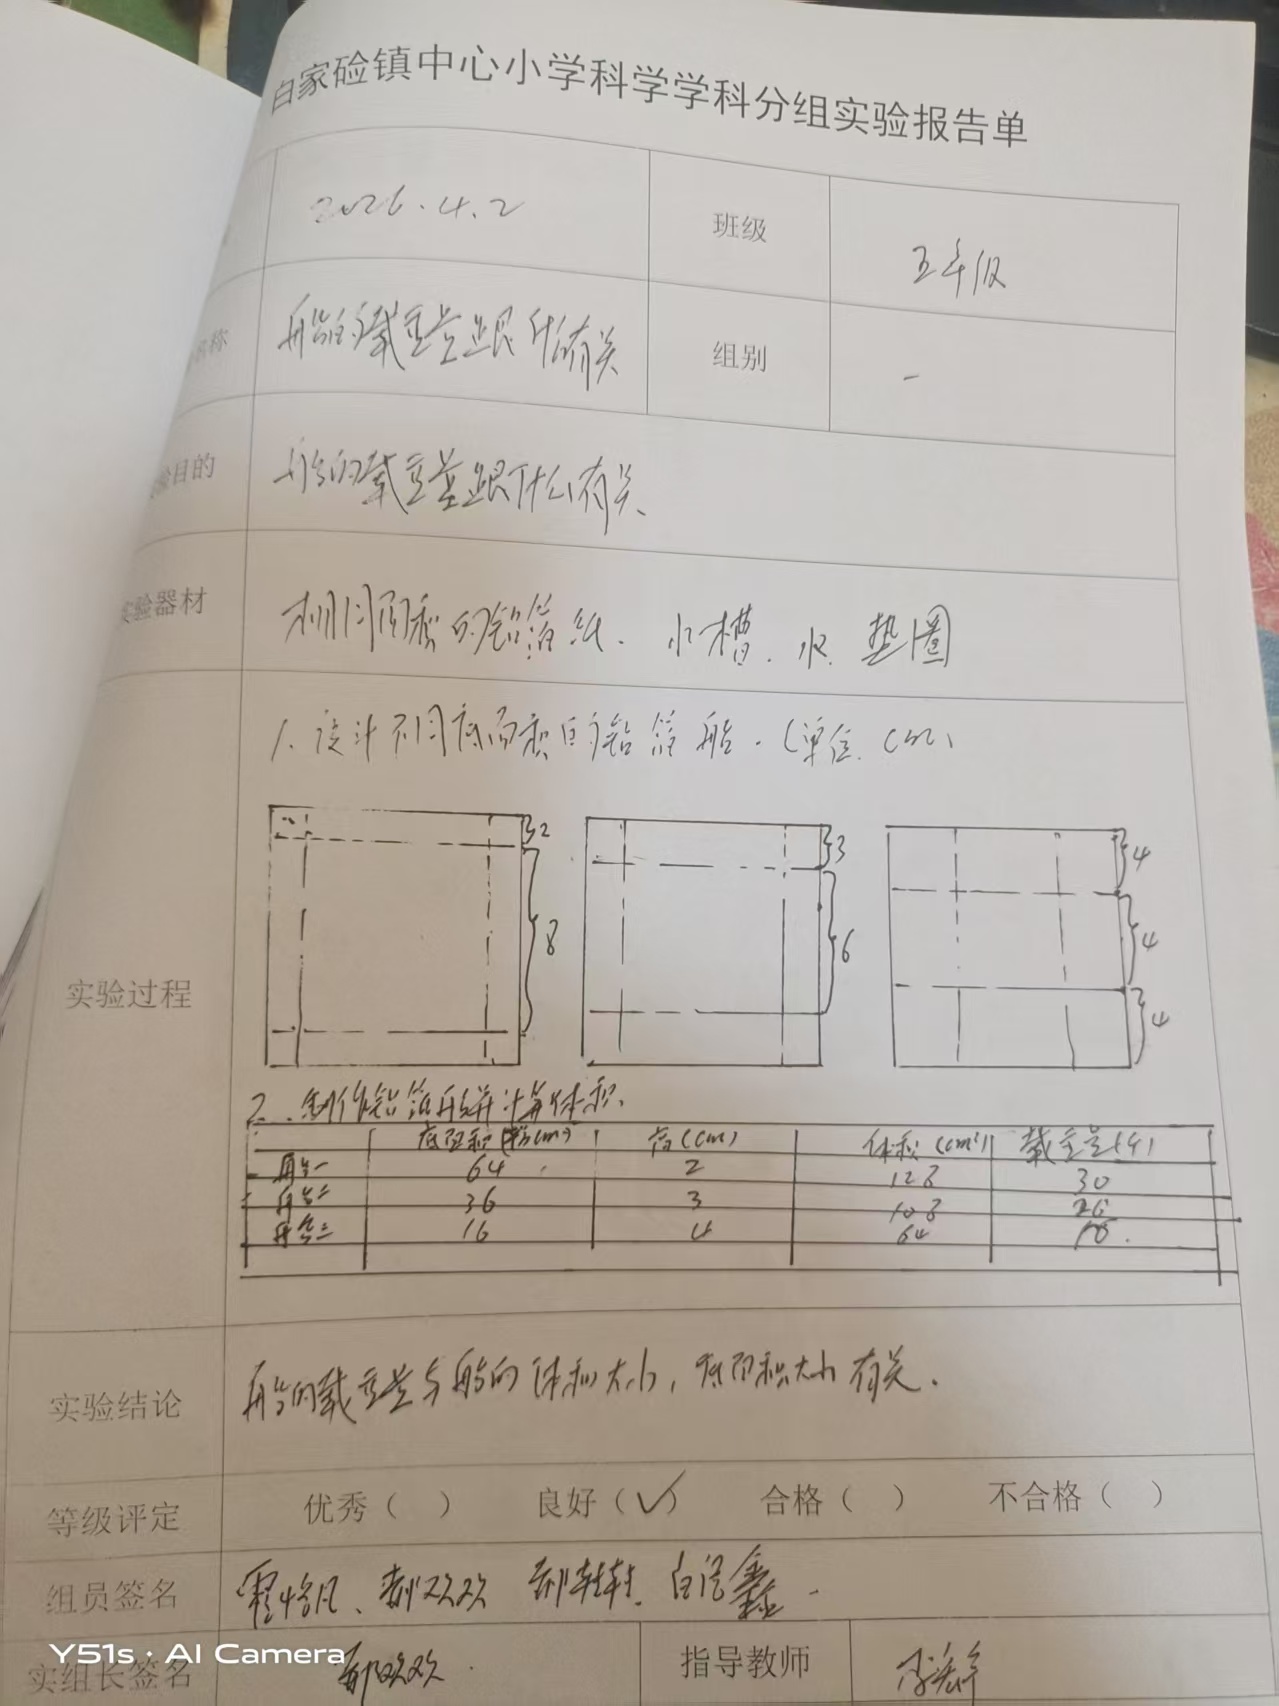 白家硷镇中心小学科学学科分组实验报告单
2026.4.2 班级 五年级
名称 船的载重量跟什么有关 组别 一
验目的 船的载重量跟什么有关、
实验器材 相同面积的铝箔纸、水槽、水、垫圈
1.设计不同底面积的铝箔船.(单位.cm)
2 3 4
8 6 4
4
实验过程
2.制作铝箔船并计算体积、
底面积 高(cm) 体积(cm³) 载重量(个)
船一 64 2 128 30
船二 36 3 108 26
船三 16 4 64
实验结论 船的载重量与船的体积大小,底面积大小有关.
等级评定 优秀( ) 良好(✓) 合格( ) 不合格( )
组员签名
Y51s · AI Camera
实组长签名 指导教师